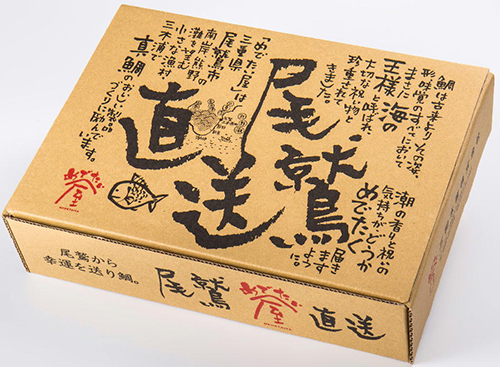 鯛は古来より、その姿、
形、味覚のすべてにおいて
まさに
王様海の
と呼ばれ、
大切な祝い物と
珍重されて
きました。
尾鷲
直送
「めでたい屋」は
三重県
尾鷲市
南岸、熊野
灘を望む
小さな漁村
三木浦で
真鯛のおいしい製品
づくりに励んで
います。
めでたい屋
潮の香りと祝いの
気持ちがどうか
めでたく
届き
ます
ように。
尾鷲から
幸運を送り鯛。
尾鷲
めでたい屋
直送